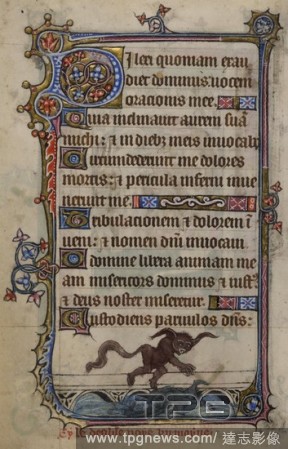 Dilexi quoniam exau
diet dominus vocem
oracionis mee.
Quia inclinavit aurem suā
michi: & in diebȝ meis invocabo
Circumdederunt me dolores
mortis: & pericula inferni inve
nerunt me.
Tribulacionem & dolorem ī
veni: & nomen dñi invocavi
O domine libera animam me
am misericors dominus & iust9
& deus noster miseretur.
Custodiens parvulos dñs:
TPG
www.tpgnews.com / 達志影像